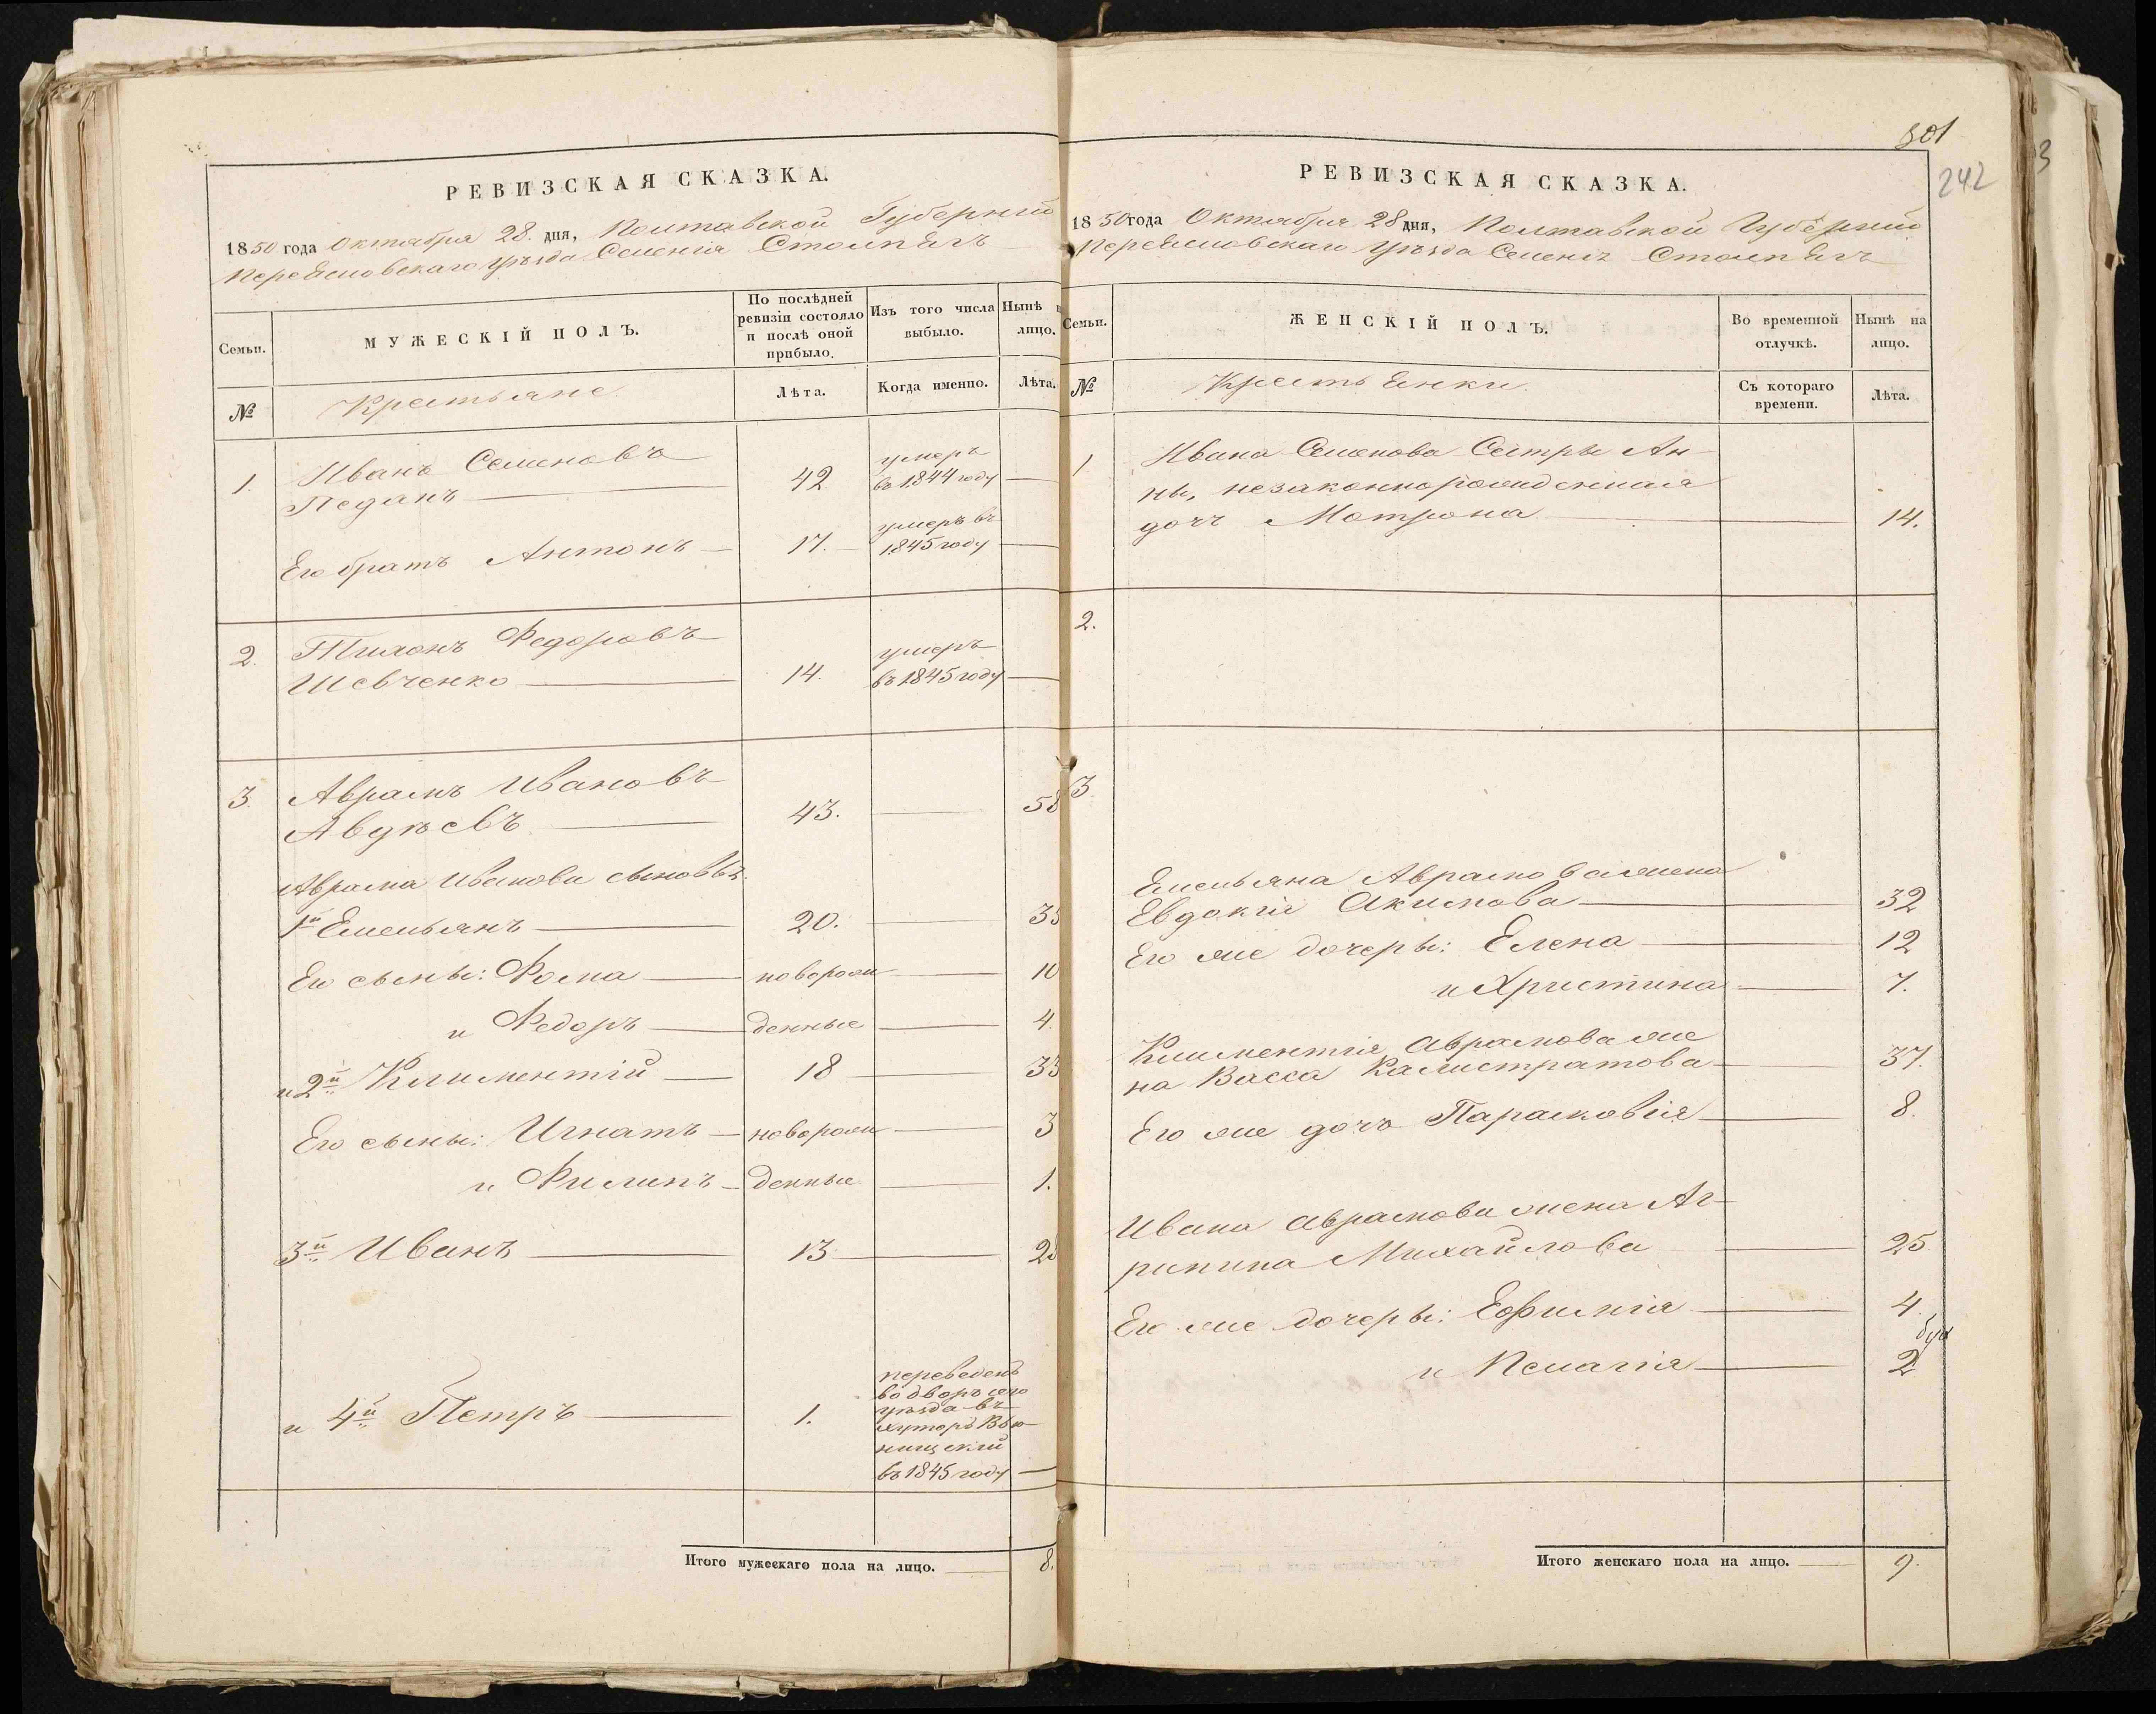 РЕВИЗСКАЯ СКАЗКА.
1850 года Октября 28. дня, Полтавской Губерніи
Переяславскаго Уѣзда Селенія Столпягъ
Семьи.
МУЖЕСКІЙ ПОЛЪ.
По послѣдней
ревизіи состояло
и послѣ оной
прибыло.
Изъ того числа
выбыло.
Нынѣ
лицо.
№
Крестьяне
Лѣта.
Когда именно.
Лѣта.
1. Иванъ Семеновъ
Педанъ 42 умеръ
въ 1844 году
Его братъ Антонъ 17. умеръ въ
1845 году
2. Тихонъ Федоровъ
Шевченко 14. умеръ
въ 1845 году
3. Аврамъ Ивановъ
Авдѣевъ 43. 58
Аврама Иванова сыновья
1й Емельянъ 20. 35
Его сыны: Фома новорож 10
и Федоръ денные 4.
и 2й Климентій 18 33
Его сыны: Игнатъ новорож 3
и Филипъ денные 1.
3й Иванъ 13 28
и 4й Петръ 1.
переведенъ
во дворъ сего
уѣзда въ
хуторъ Вью
нищскій
въ 1845 году
Итого мужескаго пола на лицо. 8.
301
242
3
РЕВИЗСКАЯ СКАЗКА.
1850 года Октября 28 дня, Полтавской Губерніи
Переяславскаго Уѣзда Селенія Столпягъ
Семьи.
ЖЕНСКІЙ ПОЛЪ.
Во временной
отлучкѣ.
Нынѣ на
лицо.
№
Крестьянки
Съ котораго
времени.
Лѣта.
1 Ивана Семенова Сестры Ан-
ны, незаконнорожденная
дочь Матрона 14.
2.
3
Емельяна Аврамова жена
Евдокія Акимова 32
Его же дочеры: Елена 12
и Христина 7.
Климентія Аврамова же
на Васса Калистратова 37.
Его же дочь Парасковія 8.
Ивана Аврамова жена Аг-
рипина Михайлова 25
Его же дочеры: Евфимія 4.
и Пелагія 2
Итого женскаго пола на лицо. 9.